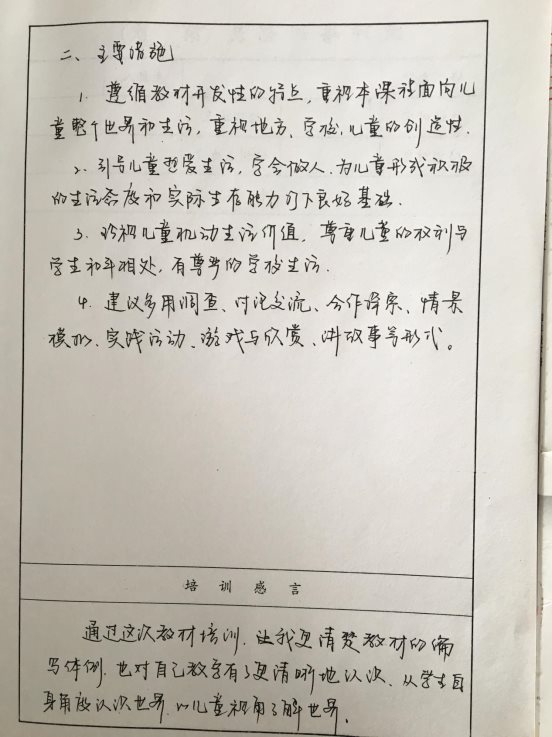 二、主要措施
1. 遵循教材开发性的特点，重视本课程面向儿
童整个世界和生活，重视地方、学校、儿童的创造性.
2. 引导儿童热爱生活，学会做人，为儿童形成积极
的生活态度和实际生存能力打下良好基础.
3. 珍视儿童机动生活价值，尊重儿童的权利与
学生和平相处，有尊严的学校生活.
4. 建议多用调查、讨论交流、合作探索、情景
模拟、实践活动、游戏与欣赏、讲故事等形式。
培训感言
通过这次教材培训，让我更清楚教材的编
写体例，也对自己教学有了更清晰地认次、从学生自
身角度认次世界，以儿童视角了解世界.